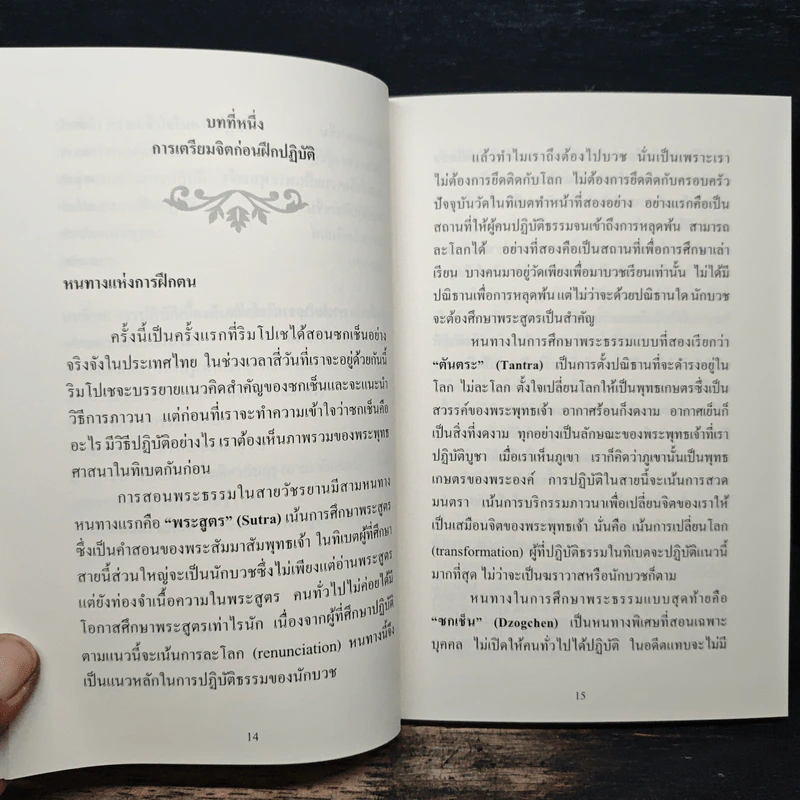 บทที่หนึ่ง
การเตรียมจิตก่อนฝึกปฏิบัติ
หนทางแห่งการฝึกตน
ครั้งนี้เป็นครั้งแรกที่ริมโปเชได้สอนซกเช็นอย่าง
จริงจังในประเทศไทย ในช่วงเวลาสี่วันที่เราจะอยู่ด้วยกันนี้
ริมโปเชจะบรรยายแนวคิดสำคัญของซกเช็นและจะแนะนำ
วิธีการภาวนา แต่ก่อนที่เราจะทำความเข้าใจว่าซกเช็นคือ
อะไร มีวิธีปฏิบัติอย่างไร เราต้องเห็นภาพรวมของพระพุทธ
ศาสนาในทิเบตกันก่อน
การสอนพระธรรมในสายวัชรยานมีสามหนทาง
หนทางแรกคือ “พระสูตร” (Sutra) เน้นการศึกษาพระสูตร
ซึ่งเป็นคำสอนของพระสัมมาสัมพุทธเจ้า ในทิเบตผู้ที่ศึกษา
สายนี้ส่วนใหญ่จะเป็นนักบวชซึ่งไม่เพียงแต่อ่านพระสูตร
แต่ยังท่องจำเนื้อความในพระสูตร คนทั่วไปไม่ค่อยได้มี
โอกาสศึกษาพระสูตรเท่าไรนัก เนื่องจากผู้ที่ศึกษาปฏิบัติ
ตามแนวนี้จะเน้นการละโลก (renunciation) หนทางนี้จึง
เป็นแนวหลักในการปฏิบัติธรรมของนักบวช
14
แล้วทำไมเราถึงต้องไปบวช นั่นเป็นเพราะเรา
ไม่ต้องการยึดติดกับโลก ไม่ต้องการยึดติดกับครอบครัว
ปัจจุบันวัดในทิเบตทำหน้าที่สองอย่าง อย่างแรกคือเป็น
สถานที่ให้ผู้คนปฏิบัติธรรมจนเข้าถึงการหลุดพ้น สามารถ
ละโลกได้ อย่างที่สองคือเป็นสถานที่เพื่อการศึกษาเล่า
เรียน บางคนมาอยู่วัดเพียงเพื่อมาบวชเรียนเท่านั้น ไม่ได้มี
ปณิธานเพื่อการหลุดพ้น แต่ไม่ว่าจะด้วยปณิธานใด นักบวช
จะต้องศึกษาพระสูตรเป็นสำคัญ
หนทางในการศึกษาพระธรรมแบบที่สองเรียกว่า
“ตันตระ” (Tantra) เป็นการตั้งปณิธานที่จะดำรงอยู่ใน
โลก ไม่ละโลก ตั้งใจเปลี่ยนโลกให้เป็นพุทธเกษตรซึ่งเป็น
สวรรค์ของพระพุทธเจ้า อากาศร้อนก็งดงาม อากาศเย็นก็
เป็นสิ่งที่งดงาม ทุกอย่างเป็นลักษณะของพระพุทธเจ้าที่เรา
ปฏิบัติบูชา เมื่อเราเห็นภูเขา เราก็คิดว่าภูเขานั้นเป็นพุทธ
เกษตรของพระองค์ การปฏิบัติในสายนี้จะเน้นการสวด
มนตรา เน้นการบริกรรมภาวนาเพื่อเปลี่ยนจิตของเราให้
เป็นเสมือนจิตของพระพุทธเจ้า นั่นคือ เน้นการเปลี่ยนโลก
(transformation) ผู้ที่ปฏิบัติธรรมในทิเบตจะปฏิบัติแนวนี้
มากที่สุด ไม่ว่าจะเป็นฆราวาสหรือนักบวชก็ตาม
หนทางในการศึกษาพระธรรมแบบสุดท้ายคือ
“ซกเช็น” (Dzogchen) เป็นหนทางพิเศษที่สอนเฉพาะ
บุคคล ไม่เปิดให้คนทั่วไปได้ปฏิบัติ ในอดีตแทบจะไม่มี
15